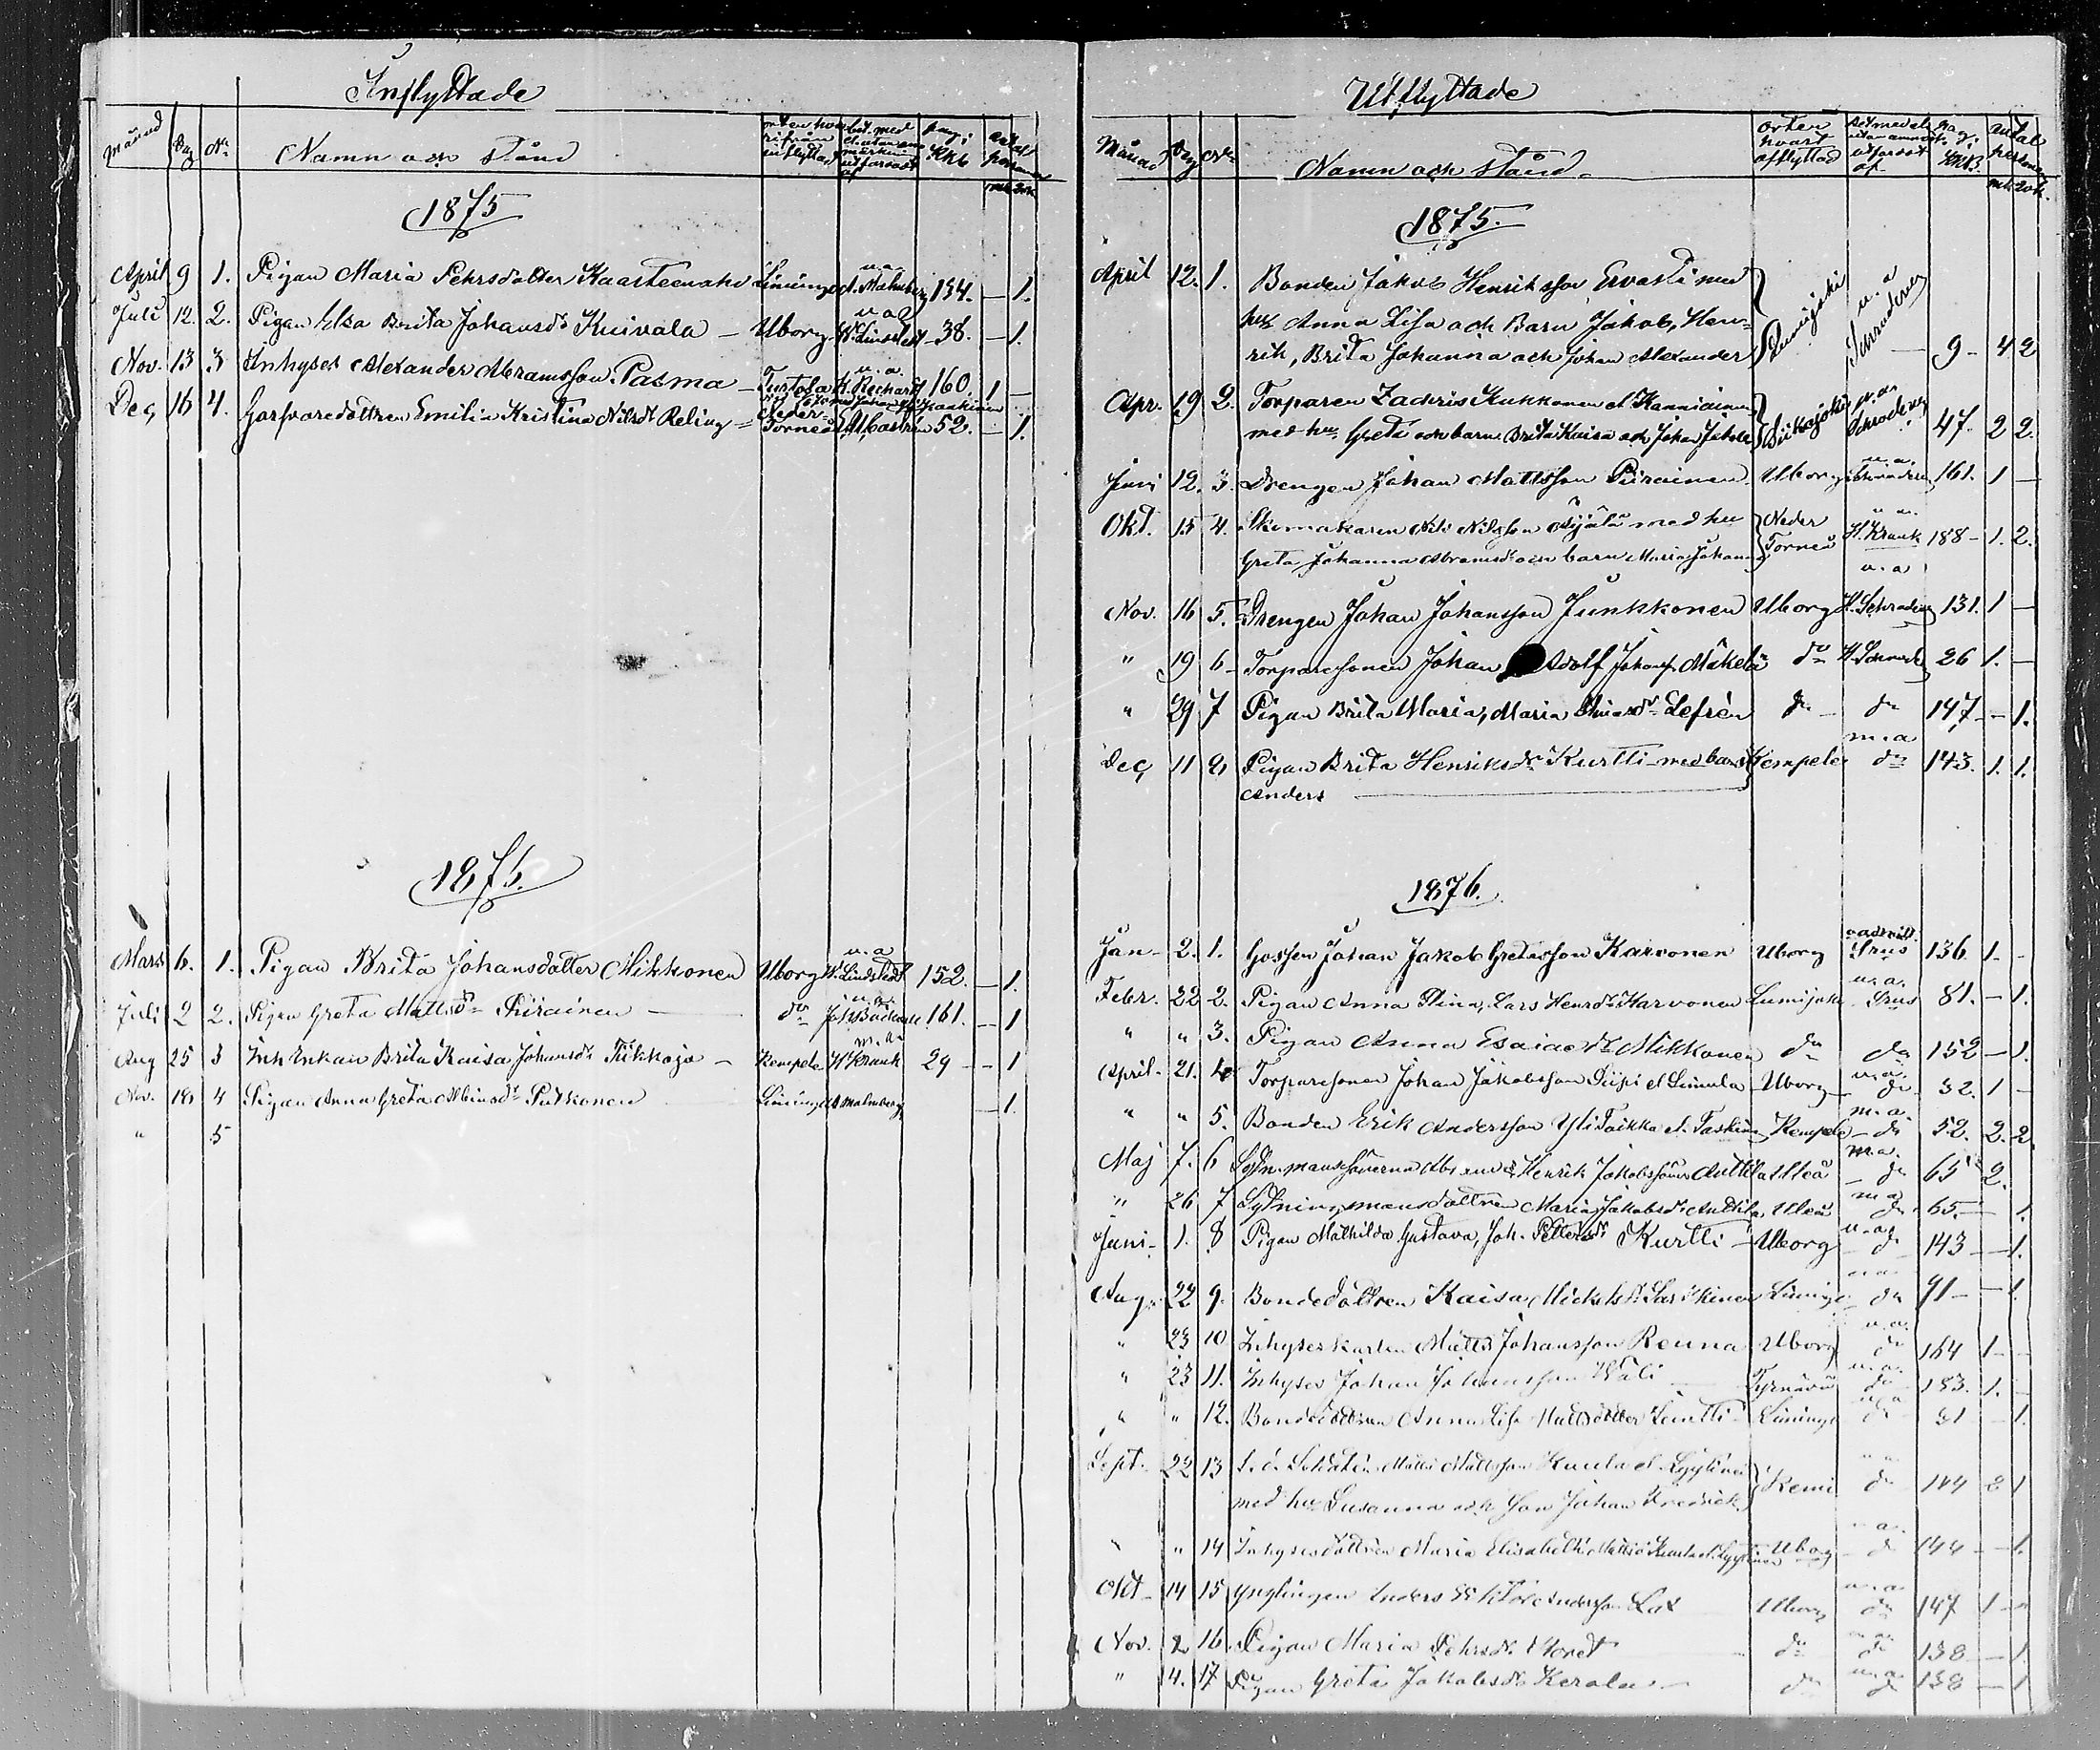 Inflyttade
Månad Dag No Namn och stånd orten hvarifrån inflyttad bet. med el. utan anmärkning utfärdadt af pag. i KKb antal personer mk. qvk.
1875
April 9 1. Pigan Maria Pehrsdotter Kaarteenaho Liminga u.a. A. Malmberg 134. — 1.
Juli 12. 2. Pigan Elsa Brita Johansdr Kuivala — Uborg u.a. W. Lindstedt 38. — 1.
Nov. 13 3 Inhyses Alexander Abramsson Pasma — Turtola u.a. K. Rechardt 160. 1 —
Dec 16 4. Garfvaredottren Emilia Kristina Nilsdr Reling — Neder Torneå Castrén 52. — 1.
1876.
Mars 6. 1. Pigan Brita Johansdotter Mikkonen Uborg u.a. W. Lindstedt 152. — 1.
Juli 2 2. Pigan Greta Mattsdr Piirainen — do u.a. Joh. Bäckman 161. — 1
Aug 25 3 Inh Enkan Brita Kaisa Johansdr Tikkaja — Kempele m.a. H Krank 29 — 1
Nov. 18 4 Pigan Anna Greta Albinsdr Putkonen — Liminga A Malmberg — 1.
" 5
Utflyttade
Månad Dag No Namn och stånd. orten hvart afflyttad Bet med el. utan anmärk. utfärdat af pag. i KKB. antal personer mk. qvk.
1875.
April 12. 1. Bonden Jakob Henriksson Ervasti med
hu Anna Lisa och Barn Jakob, Hen-
rik, Brita Johanna och Johan Alexander Lumijoki u.a Schroderus 9 – 4 2
Apr. 19 2. Torparen Zachris Kukkonen el. Kanniainen
med hu Greta och barn Brita Kaisa och Johan Jakob Siikajoki u.a. Schroderus 47. 2 2.
Juni 12. 3. Drengen Johan Mattsson Piirainen Uborg u.a. Schroderus 161. 1 —
Okt. 15 4. Skomakaren Nils Nilsson Öijälä med hu
Greta Johanna Abramsdr och barn Maria Johanna Neder Torneå u.a. H. Krank 188 – 1. 2.
Nov. 16 5. Drengen Johan Johansson Junkkonen Uborg u.a H. Schroderus 131. 1 —
" 19 6 – Torparesonen Johan Adolf Johans. Mäkelä do H. Schrode 26 1. —
" 29 7 Pigan Brita Maria, Maria dr Lefrèn do — do 147 – – 1.
Dec 11 8 Pigan Brita Henriksdr Kurtti med barn Kempele m.a do 143. 1. 1.
Anders
1876.
Jan – 2. 1. Gossen Johan Jakob Gretasson Karvonen Uborg Frus 136. 1. –
Febr. 22 2. Pigan Anna Stina, Lars Henrsdr Karvonen Lumijoki u.a. Frus 81. – 1.
" " 3. Pigan Anna Esaiae dr Mikkonen do do 152 – 1.
April – 21. 4 Torparesonen Johan Jakobsson Piipi el Limula Uborg — u.a. do 32. 1 –
" " 5. Bonden Erik Andersson Yli Taikka el. Taskinen Kempele m.a. do 52. 2. 2.
Maj 7. 6 Lydn.manssönerna Abram & Henrik Jakobssöner Anttila Uleå m.a. do 65 2.
" 26 7 Lydningsmansdottren Maria Jakobsdr Anttila Uleå m.a do 65. — 1.
Juni – 1. 8 Pigan Mathilda Gustava, Joh. Pettersdr Kurtti — Uborg u.a. do 143 — 1.
Aug. 22 9. Bondedottren Kaisa Mickelsdr Sarkkinen Liminga do 91 – – 1.
" 23 10 Inhyseskarlen Matts Johansson Renna Uborg u.a. do 164 1 –
" 23 11. Inhyses Johan Johansson Wäli — Tyrnävä u.a. do 183. 1. –
" " 12. Bondedottren Anna Lisa Mattsdotter Liminga u.a do 31 – 1.
Sept. 22 13 Soldaten Matts Mattsson Kuula el. Lyytinen
med hu Susanna och son Johan Fredrick Kemi do 144 2 1
" " 14 Inhysesdottren Maria Elisabeth Mattsdr Kuula el. Lyytinen Uborg u.a. do 144 – – 1.
Okt – 14 15 Ynglingen Anders Viktor Andersson Lax Uborg u.a. do 147 1 – –
Nov. 2 16. Pigan Maria Pehrsdr do do 138 — 1
" 14. 17 Pigan Greta Jakobsdr Kerola — do u.a. do 138 — 1